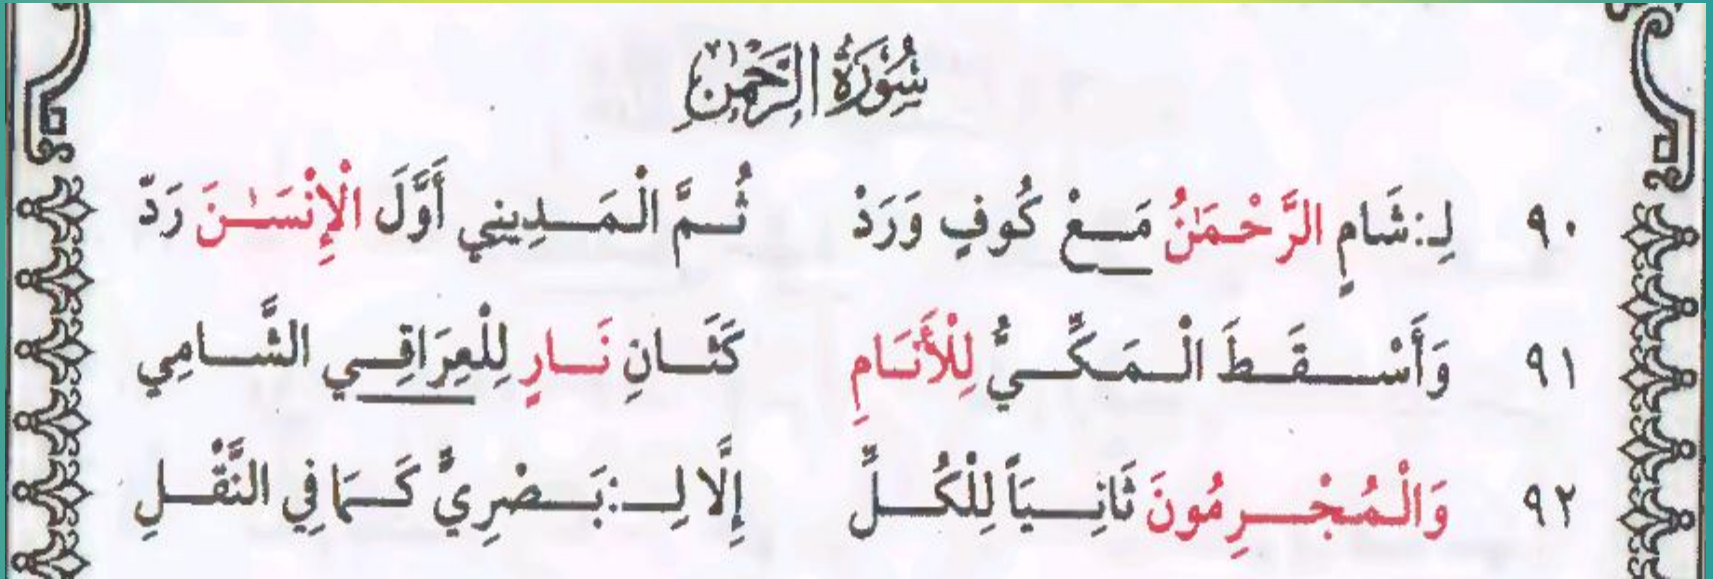 سُورَةُ الرَّحْمَٰنِ
٩٠ لِـ:شَامٍ الرَّحْمَٰنُ مَعْ كُوفٍ وَرَدْ ثُمَّ الْمَدِينِي أَوَّلَ الْإِنْسَٰنَ رَدّْ
٩١ وَأَسْقَطَ الْمَكِّيُّ لِلْأَنَامِ كَثَانِ نَارٍ لِلْعِرَاقِي الشَّامِي
٩٢ وَالْمُجْرِمُونَ ثَانِيَاً لِلْكُلِّ إِلَّا لِـ:بَصْرِيٍّ كَمَا فِي النَّقْلِ